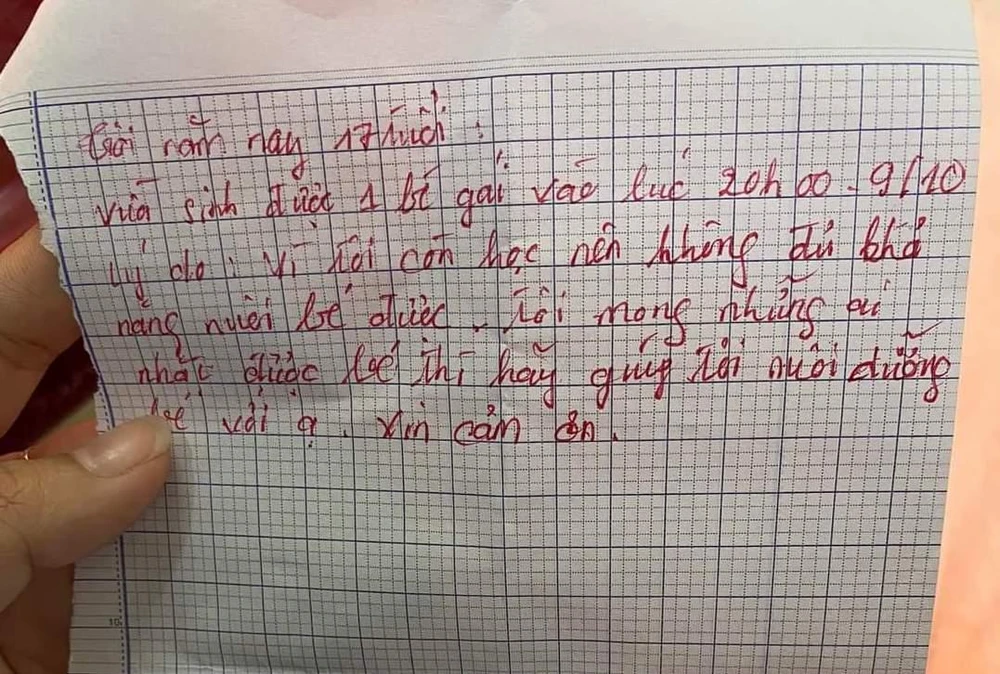 Tôi năm nay 17 tuổi.
vừa sinh được 1 bé gái vào lúc 20h00. 9/10
Lý do: Vì tôi còn học nên không đủ khả
năng nuôi bé được. Tôi mong những ai
nhặt được bé thì hãy giúp tôi nuôi dưỡng
bé với ạ. xin cảm ơn.
10